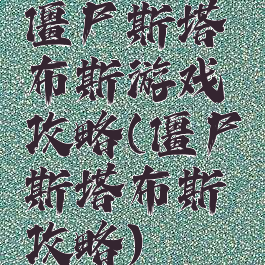 僵尸斯塔
布斯游戏
攻略(僵尸
斯塔布斯
攻略)